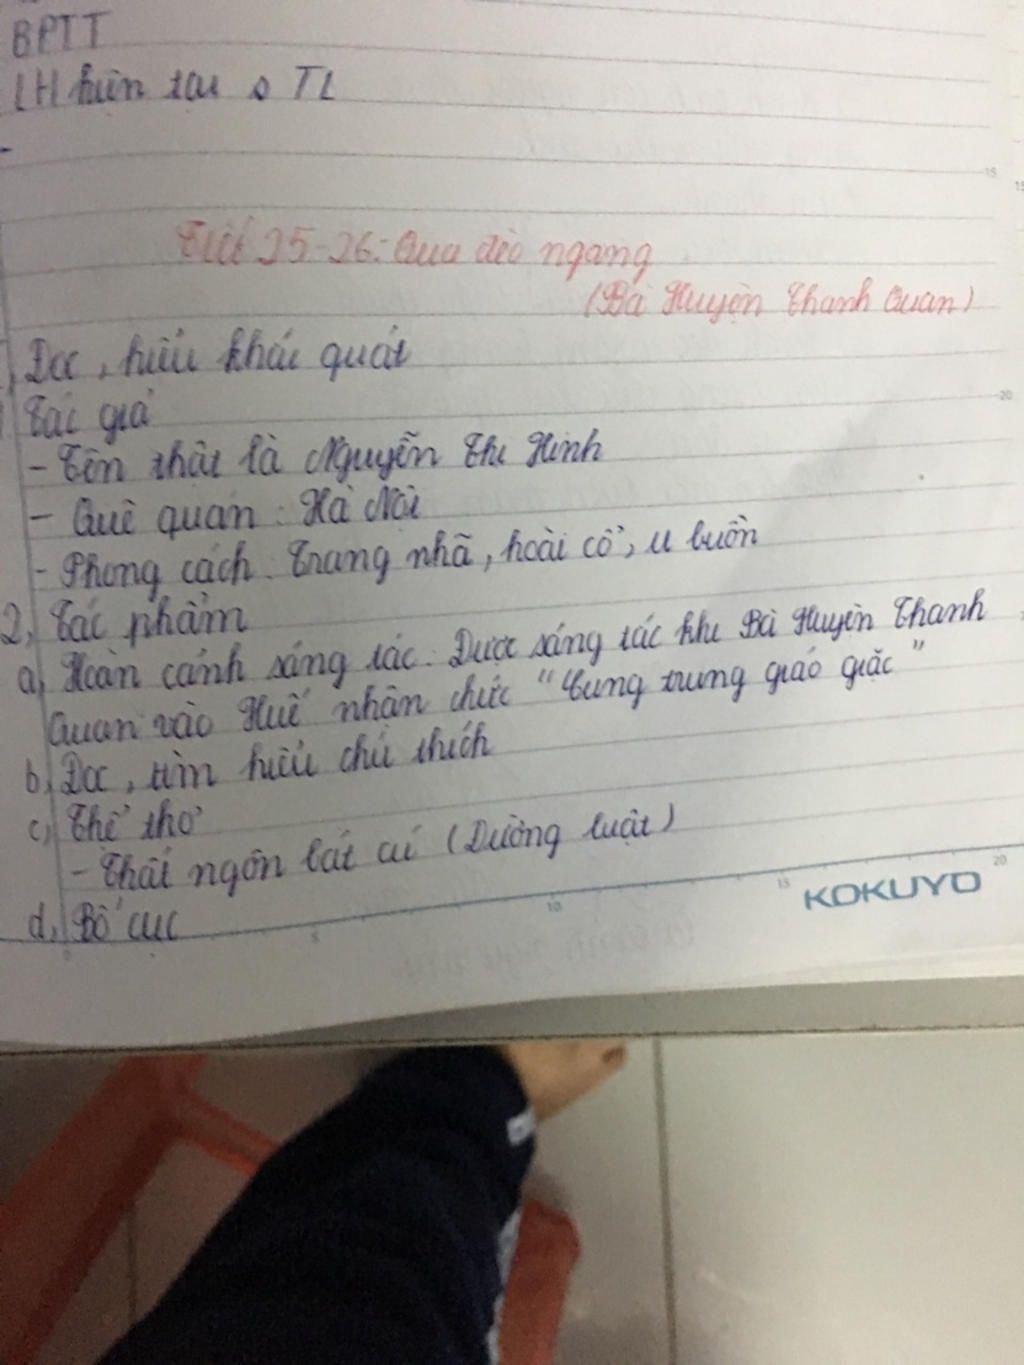 BPTT
LH hiện tại → TL
Tiết 25-26: Qua đèo ngang
(Bà Huyện Thanh Quan)
, Đọc, hiểu khái quát
Tác giả
- Tên thật là Nguyễn Thị Hinh
- Quê quán: Hà Nội
- Phong cách: Trang nhã, hoài cổ, u buồn
2, Tác phẩm
a, Hoàn cảnh sáng tác: Được sáng tác khi Bà Huyện Thanh
Quan vào Huế nhận chức "Cung trung giáo giặc"
b, Đọc, tìm hiểu chú thích
c, Thể thơ
- Thất ngôn bát cú (Đường luật)
d, Bố cục
KOKUYO
15
20
0 5 10 15 20